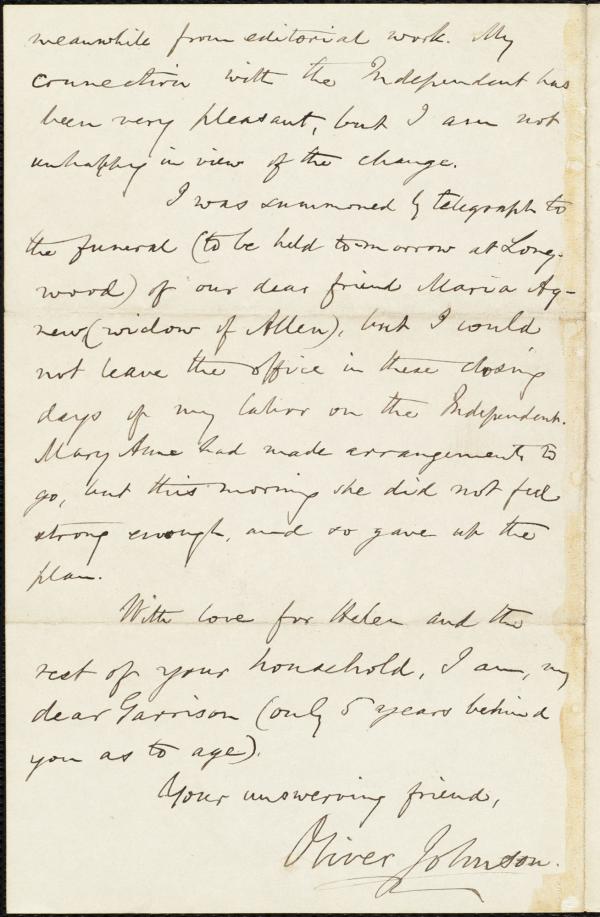 meanwhile from editorial work. My
connection with the Independent has
been very pleasant, but I am not
unhappy in view of the change.
I was summoned by telegraph to
the funeral (to be held to-morrow at Long-
wood) of our dear friend Maria Ag-
new (widow of Allen), but I could
not leave the office in these closing
days of my labor on the Independent.
Mary Anne had made arrangements to
go, but this morning she did not feel
strong enough, and so gave up the
plan.
With love for Helen and the
rest of your household, I am, my
dear Garrison (only 5 years behind
you as to age).
Your unswerving friend,
Oliver Johnson.